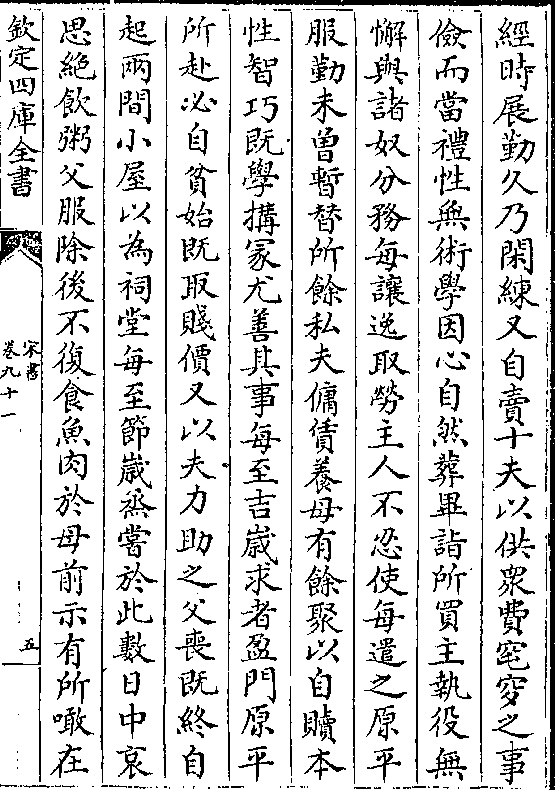 經時展勤久乃閑練又自賣十夫以供衆費窀穸之事
儉而當禮性無術學因心自然葬畢詣所買主執役無
懈與諸奴分務每讓逸取勞主人不忍使每遣之原平
服勤未曽暫替所餘私夫傭賃養母有餘聚以自贖本
性智巧既學搆冢尤善其事每至吉嵗求者盈門原平
所赴必自貧始既取賤價又以夫力助之父喪既終自
起兩間小屋以為祠堂每至節嵗烝嘗於此數日中哀
思絶飲粥父服除後不復食魚肉於母前示有所噉在
欽定四庫全書
宋書
卷九十一
五